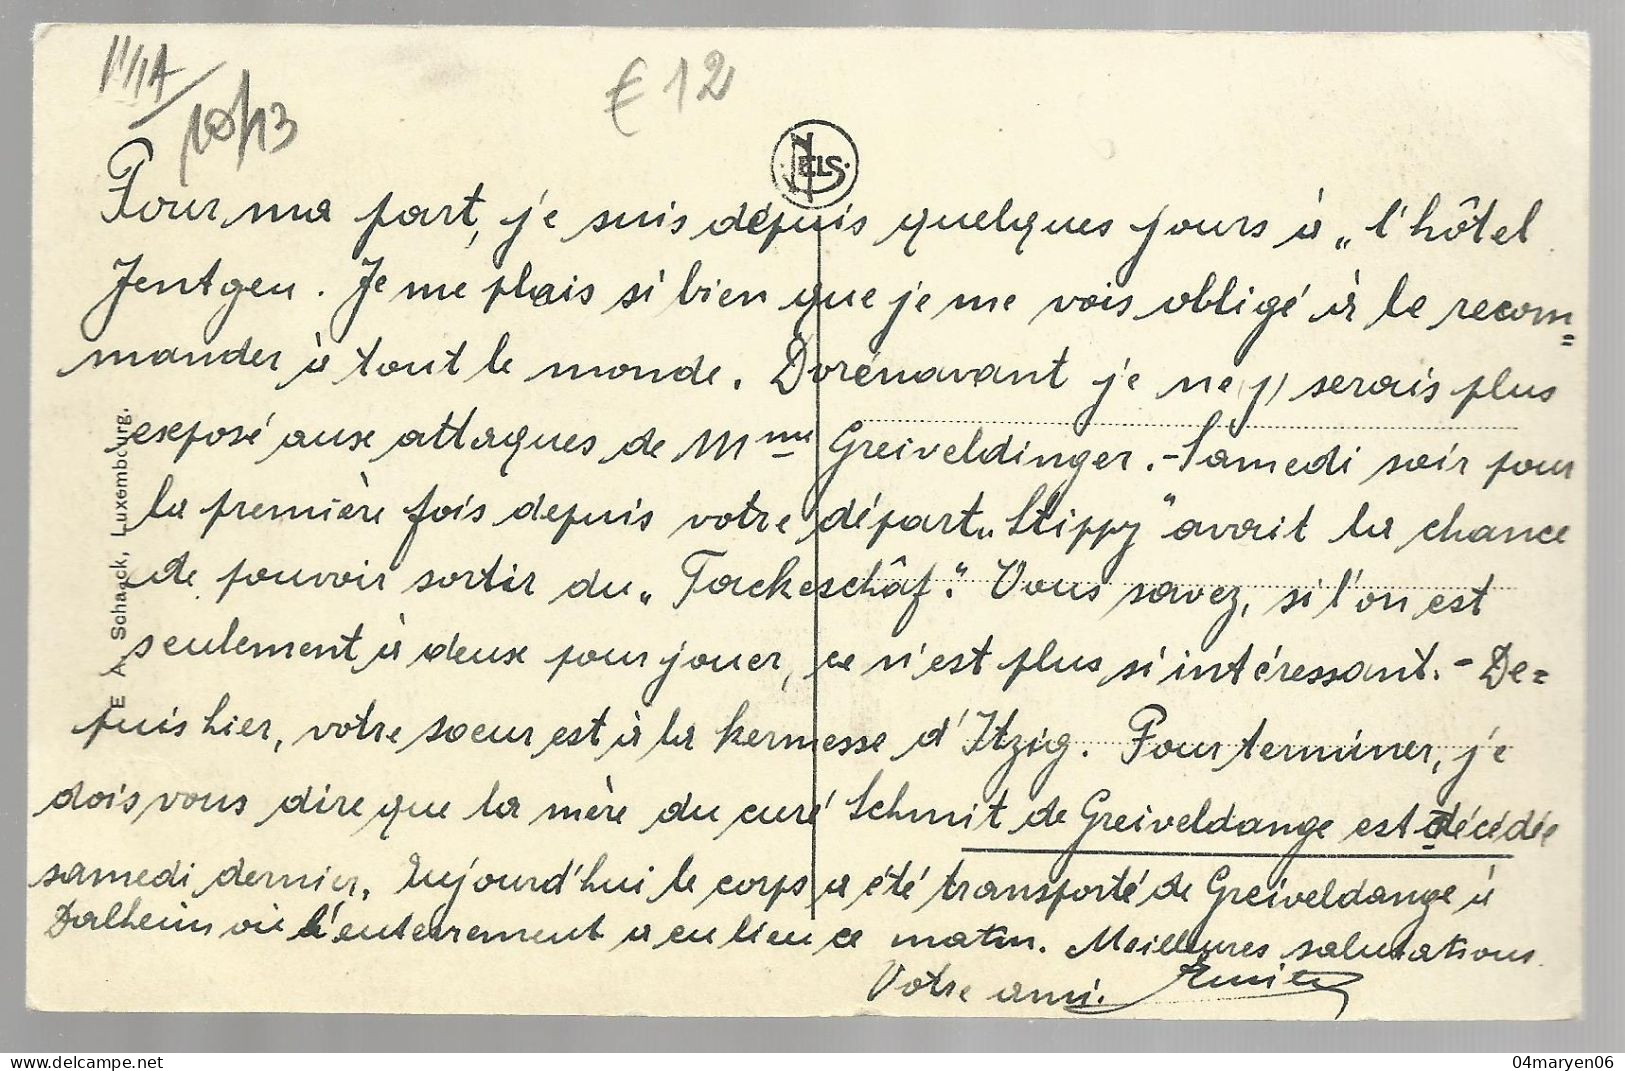 € 12
10/13
NELS
Pour ma part, je suis depuis quelques jours à „l'hôtel
Jentgen. Je me plais si bien que je me vois obligé à le recom=
mander à tout le monde. Dorénavant je ne serais plus
exposé aux attaques de Mme Greiveldinger.-Samedi soir pour
la première fois depuis votre départ „Stippy" avait la chance
de pouvoir sortir du „Tackeschâf". Vous savez, si l'on est
seulement à deux pour jouer, ce n'est plus si intéressant.-De=
puis hier, votre soeur est à la kermesse d'Itzig. Pour terminer, je
dois vous dire que la mère du curé Schmit de Greiveldange est décédée
samedi dernier. Aujourd'hui le corps a été transporté de Greiveldange à
Dalheim où l'enterrement a eu lieu ce matin. Meilleures salutations.
Votre ami. Emile
E A Schaack, Luxembourg.
www.delcampe.net
04maryen06